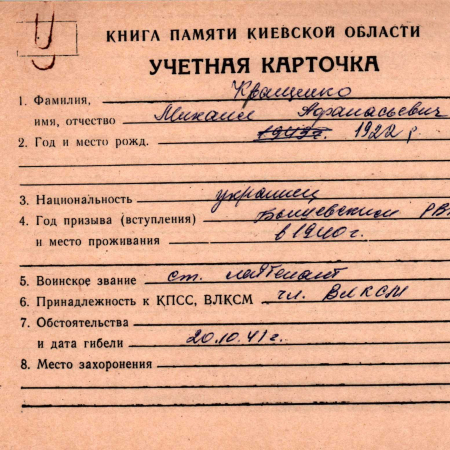 КНИГА ПАМЯТИ КИЕВСКОЙ ОБЛАСТИ
УЧЕТНАЯ КАРТОЧКА
1. Фамилия, Кващенко
имя, отчество Михаил Афанасьевич
2. Год и место рожд. 1922 г.
3. Национальность украинец
4. Год призыва (вступления)
и место проживания в 1940г.
5. Воинское звание ст. лейтенант
6. Принадлежность к КПСС, ВЛКСМ чл. ВЛКСМ
7. Обстоятельства
и дата гибели 20.10.41г.
8. Место захоронения